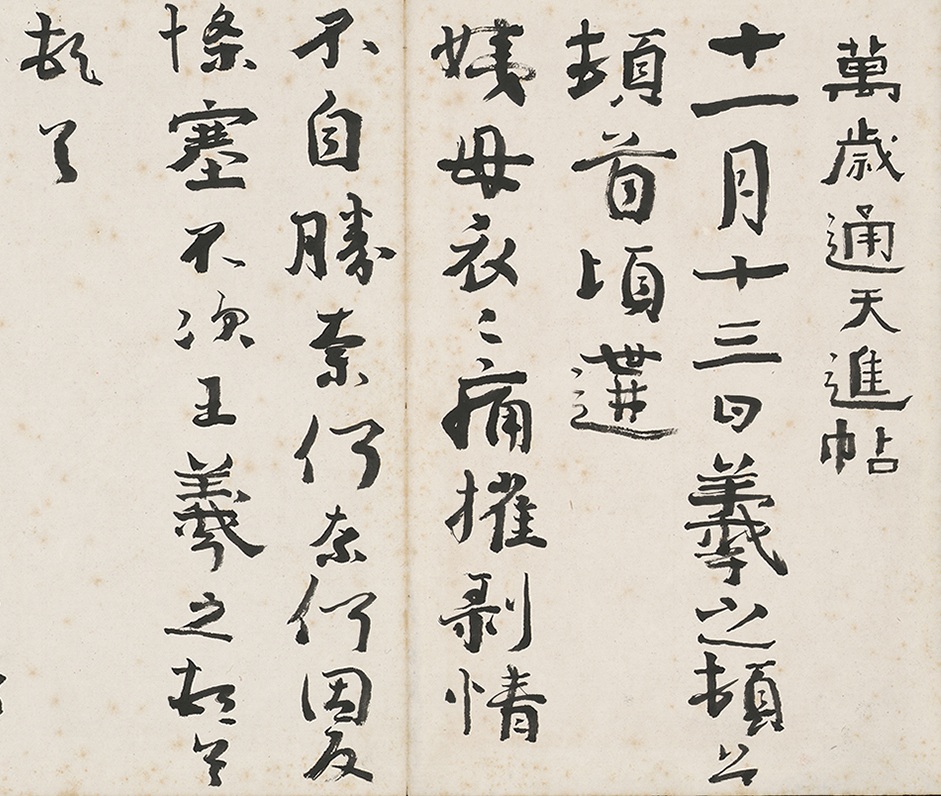 萬歲通天進帖
十一月十三日羲之頓首
頓首頃遘
姨母哀〻痛摧剝情
不自勝奈何奈何因反
慘塞不次王羲之頓首
頓首